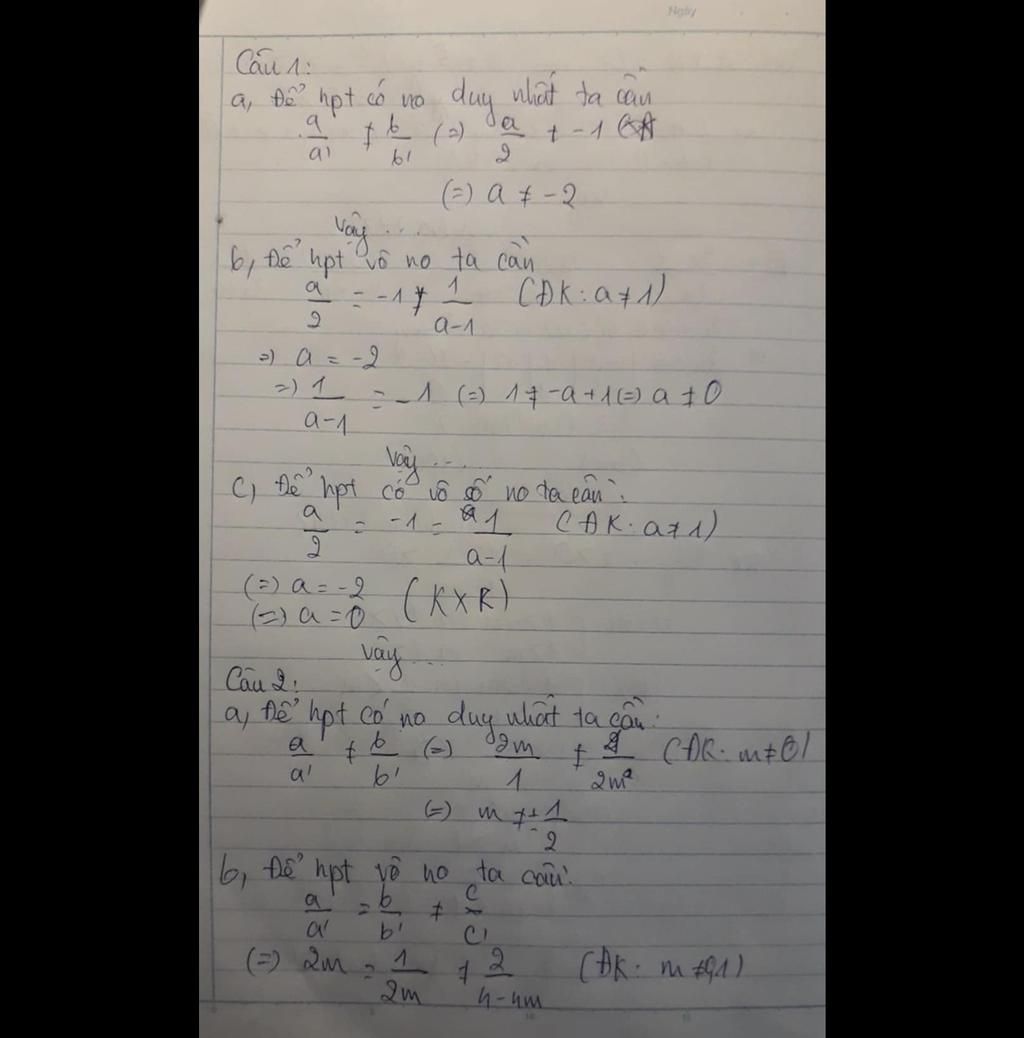 Ngày
Câu 1:
a, Để hpt có no duy nhất ta cần
a/a' ≠ b/b' (=) a/2 ≠ -1
(=) a ≠ -2
Vậy ...
b, Để hpt vô no ta cần
a/2 = -1 ≠ 1/a-1 (ĐK: a ≠ 1)
=) a = -2
=) 1/a-1 = -1 (=) 1 ≠ -a + 1 (=) a ≠ 0
Vậy ...
c, Để hpt có vô số no ta cần:
a/2 = -1 = 1/a-1 (ĐK: a ≠ 1)
(=) a = -2
(=) a = 0 (KXR)
Vậy ...
Câu 2:
a, Để hpt có no duy nhất ta cần:
a/a' ≠ b/b' (=) 2m/1 ≠ /2m (ĐK: m ≠ 0)
(=) m ≠ ± 1/2
b, Để hpt vô no ta cần:
a/a' = b/b' ≠ c/c'
(=) 2m = 1/2m ≠ 2/4-4m (ĐK: m ≠ 0,1)